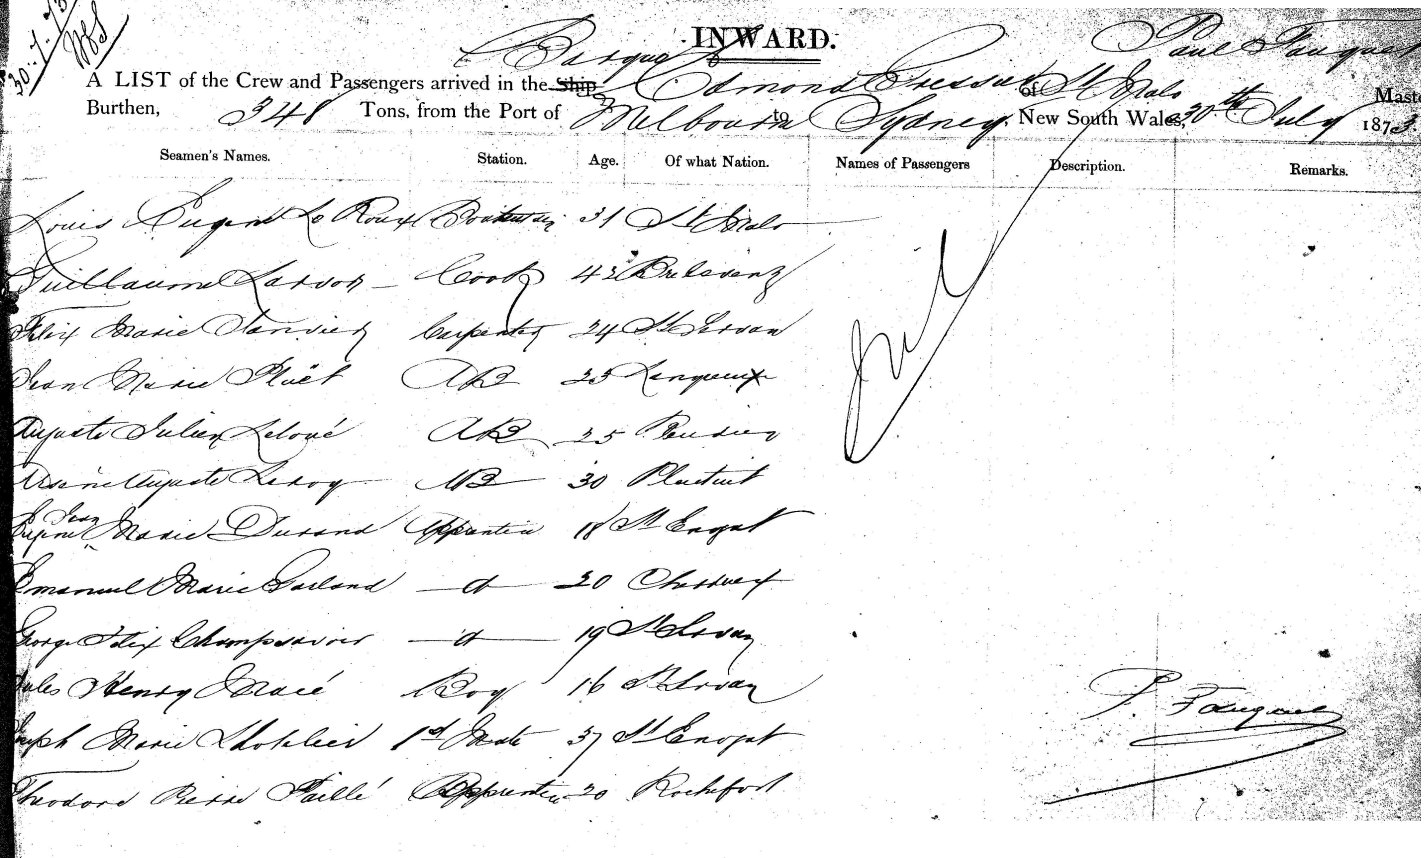 30.7.73
INWARD.
Barque Paul Fauques
A LIST of the Crew and Passengers arrived in the Ship Edmond Gressier of St Malo Maste
Burthen, 348 Tons, from the Port of Melbourne to Sydney, New South Wales, 30th July 1873.
Seamen's Names. Station. Age. Of what Nation. Names of Passengers Description. Remarks.
Louis Eugene Le Roux 31 St Malo
Guillaume Larvor Cook 42
Felix Marie Janvier Carpenter 24 St Servan
Jean Marie Ruët AB 25 Langueux
Auguste Julien Leloué AB 25
Auguste Leroy AB 30 Pleurtuit
Eugene Jean Marie Durand Apprentice 18 St Enogat
Emanuel Marie Garland do 20 Charrueix
George Felix Champsavoir do 19 St Servan
Jules Henry Macé Boy 16 St Servan
Joseph Marie 1st Mate 37 St Enogat
Theodore Pierre Faillé Apprentice 20 Rochefort
Nil
P. Fauques